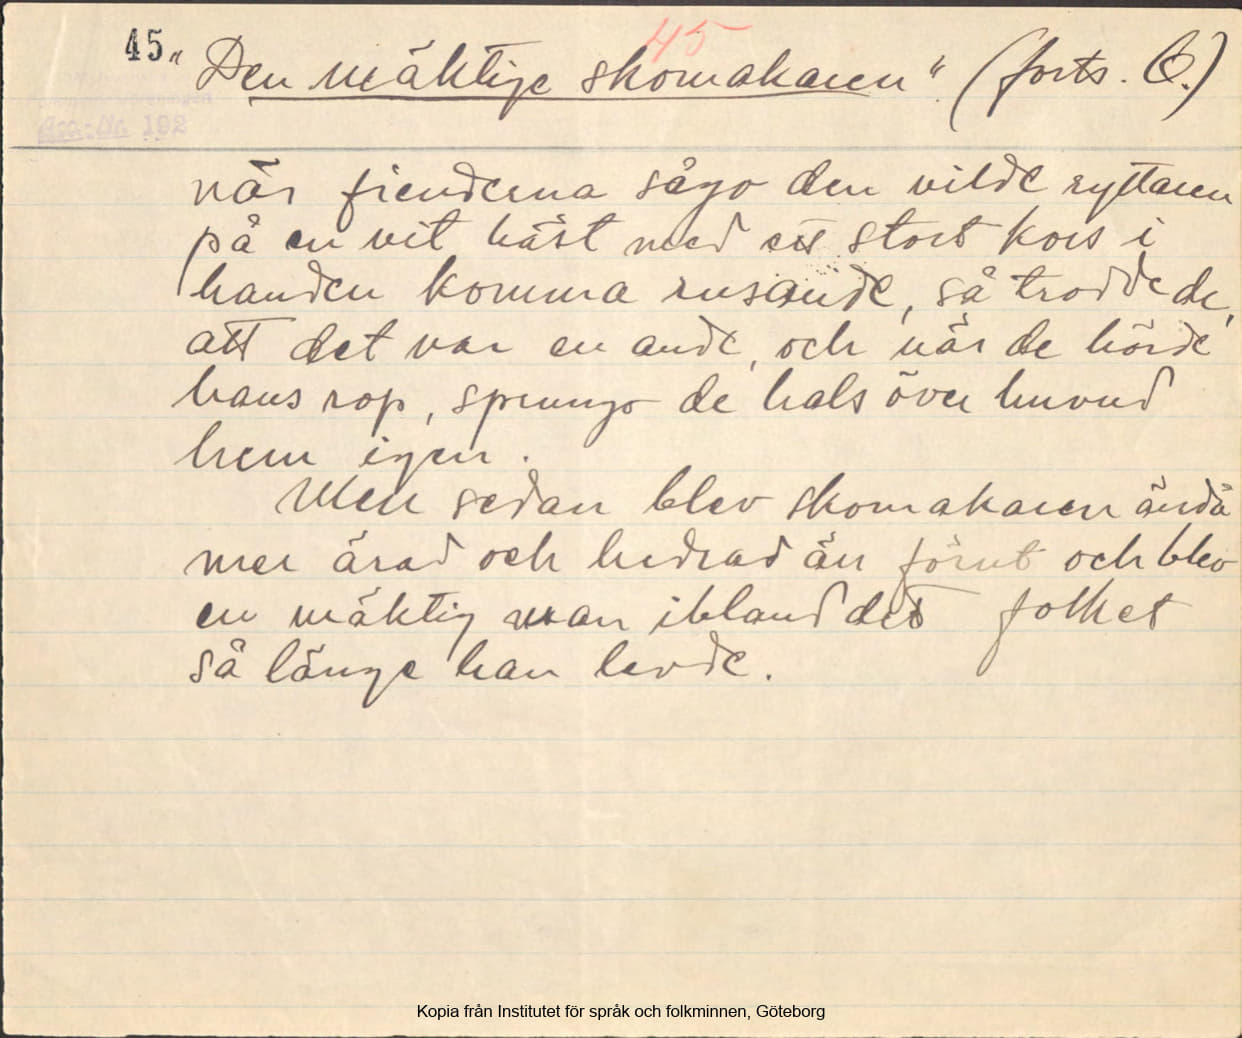 45 "Den mäktige skomakaren". (forts. 6.)
45
Acc.-No 192
när fienderna sågo den vilde ryttaren
på en vit häst med ett stort kors i
handen komma rusande, så trodde de,
att det var en ande, och när de hörde
hans rop, sprungo de hals över huvud
hem igen.
Men sedan blev skomakaren ändå
mer ärad och hedrad än förut och blev
en mäktig man ibland det folket
så länge han levde.
Kopia från Institutet för språk och folkminnen, Göteborg